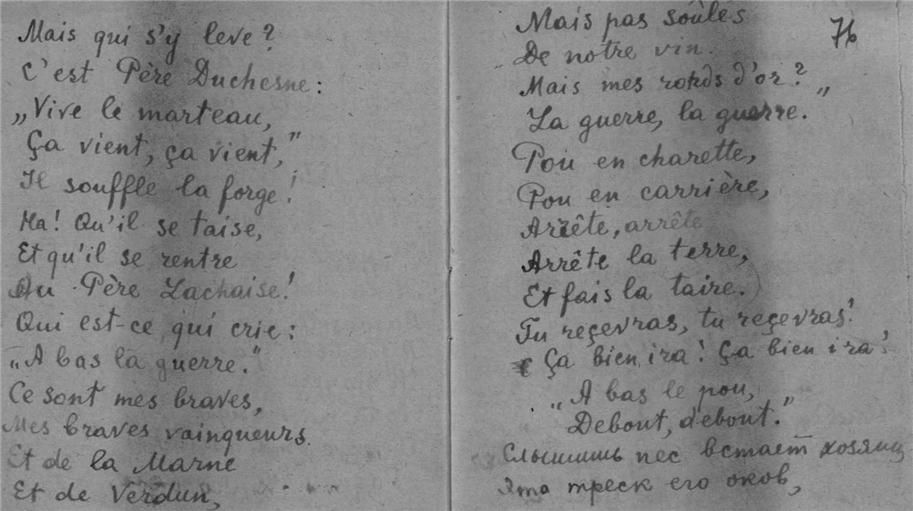 Mais qui s'y leve?
C'est Père Duchesne:
„Vive le marteau,
Ça vient, ça vient,"
Il souffle la forge!
Ha! Qu'il se taise,
Et qu'il se rentre
Au Père Lachaise!
Qui est-ce qui crie:
„A bas la guerre."
Ce sont mes braves,
Mes braves vainqueurs.
Et de la Marne
Et de Verdun,
76
Mais pas soûles
De notre vin.
Mais mes ronds d'or?
La guerre, la guerre."
Pou en charette,
Pou en carrière,
Arrête, arrête
Arrête la terre,
Et fais la taire.
Tu reçevras, tu reçevras!
Ça bien ira! Ça bien ira!
„A bas le pou,
Debout, debout."
Слышишь пес встает хозяин
Эта треск его оков,